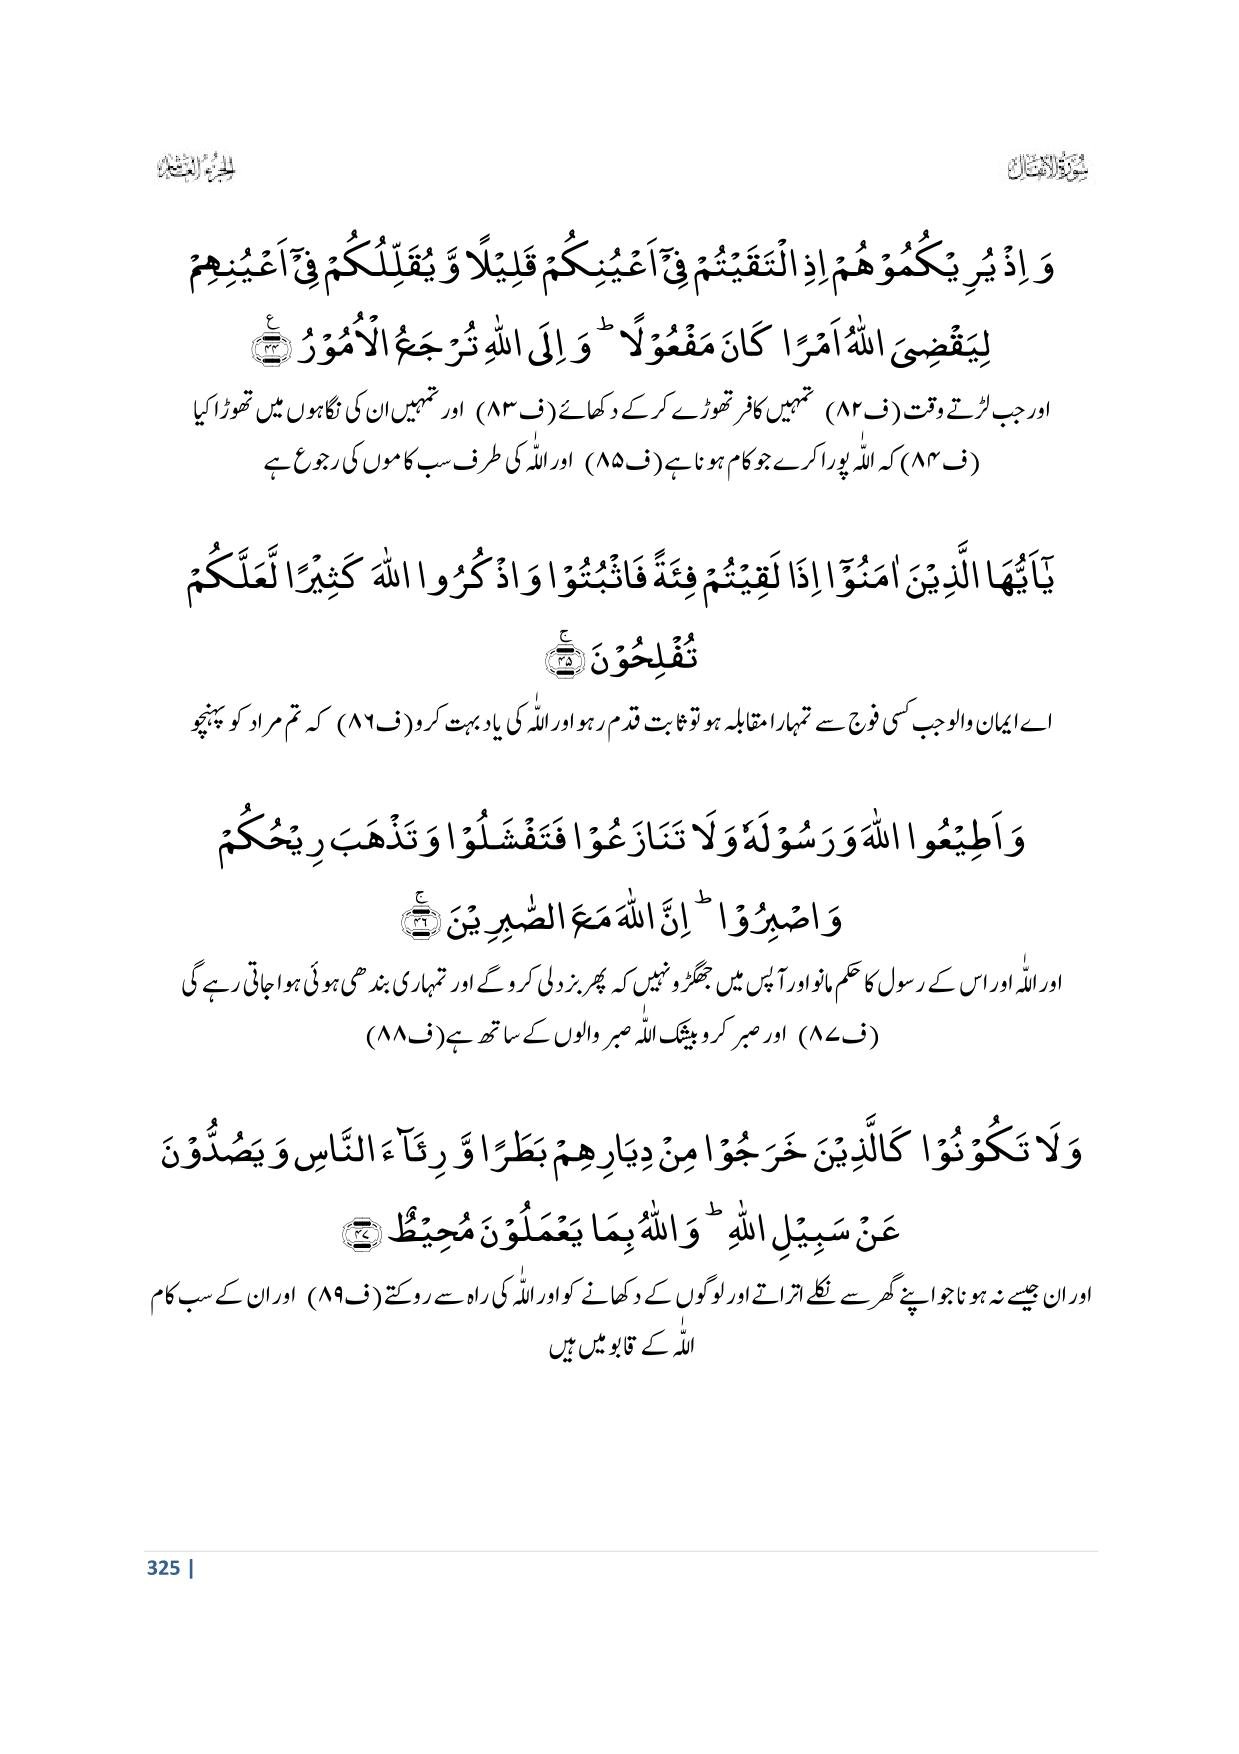 سُورَةُ الْاَنْفَالِ
الجزء العاشر
وَ اِذْ یُرِیْكُمُوْهُمْ اِذِ الْتَقَیْتُمْ فِیْۤ اَعْیُنِكُمْ قَلِیْلًا وَّ یُقَلِّلُكُمْ فِیْۤ اَعْیُنِهِمْ
لِیَقْضِیَ اللّٰهُ اَمْرًا كَانَ مَفْعُوْلًاؕ وَ اِلَى اللّٰهِ تُرْجَعُ الْاُمُوْرُ۠ ﴿۴۴﴾
اور جب لڑتے وقت (ف۸۲) تمہیں کافر تھوڑے کرکے دکھائے (ف۸۳) اور تمہیں ان کی نگاہوں میں تھوڑا کیا
(ف۸۴) کہ اللّٰہ پورا کرے جو کام ہونا ہے (ف۸۵) اور اللّٰہ کی طرف سب کاموں کی رجوع ہے
یٰۤاَیُّهَا الَّذِیْنَ اٰمَنُوْۤا اِذَا لَقِیْتُمْ فِئَةً فَاثْبُتُوْا وَ اذْكُرُوا اللّٰهَ كَثِیْرًا لَّعَلَّكُمْ
تُفْلِحُوْنَۚ ﴿۴۵﴾
اے ایمان والو جب کسی فوج سے تمہارا مقابلہ ہو تو ثابت قدم رہو اور اللّٰہ کی یاد بہت کرو (ف۸۶) کہ تم مراد کو پہنچو
وَ اَطِیْعُوا اللّٰهَ وَ رَسُوْلَهٗ وَ لَا تَنَازَعُوْا فَتَفْشَلُوْا وَ تَذْهَبَ رِیْحُكُمْ
وَ اصْبِرُوْاؕ اِنَّ اللّٰهَ مَعَ الصّٰبِرِیْنَۚ ﴿۴۶﴾
اور اللّٰہ اور اس کے رسول کا حکم مانو اور آپس میں جھگڑو نہیں کہ پھر بزدلی کرو گے اور تمہاری بندھی ہوئی ہوا جاتی رہے گی
(ف۸۷) اور صبر کرو بیشک اللّٰہ صبر والوں کے ساتھ ہے (ف۸۸)
وَ لَا تَكُوْنُوْا كَالَّذِیْنَ خَرَجُوْا مِنْ دِیَارِهِمْ بَطَرًا وَّ رِئَآءَ النَّاسِ وَ یَصُدُّوْنَ
عَنْ سَبِیْلِ اللّٰهِؕ وَ اللّٰهُ بِمَا یَعْمَلُوْنَ مُحِیْطٌ ﴿۴۷﴾
اور ان جیسے نہ ہونا جو اپنے گھر سے نکلے اتراتے اور لوگوں کے دکھانے کو اور اللّٰہ کی راہ سے روکتے (ف۸۹) اور ان کے سب کام
اللّٰہ کے قابو میں ہیں
325 |